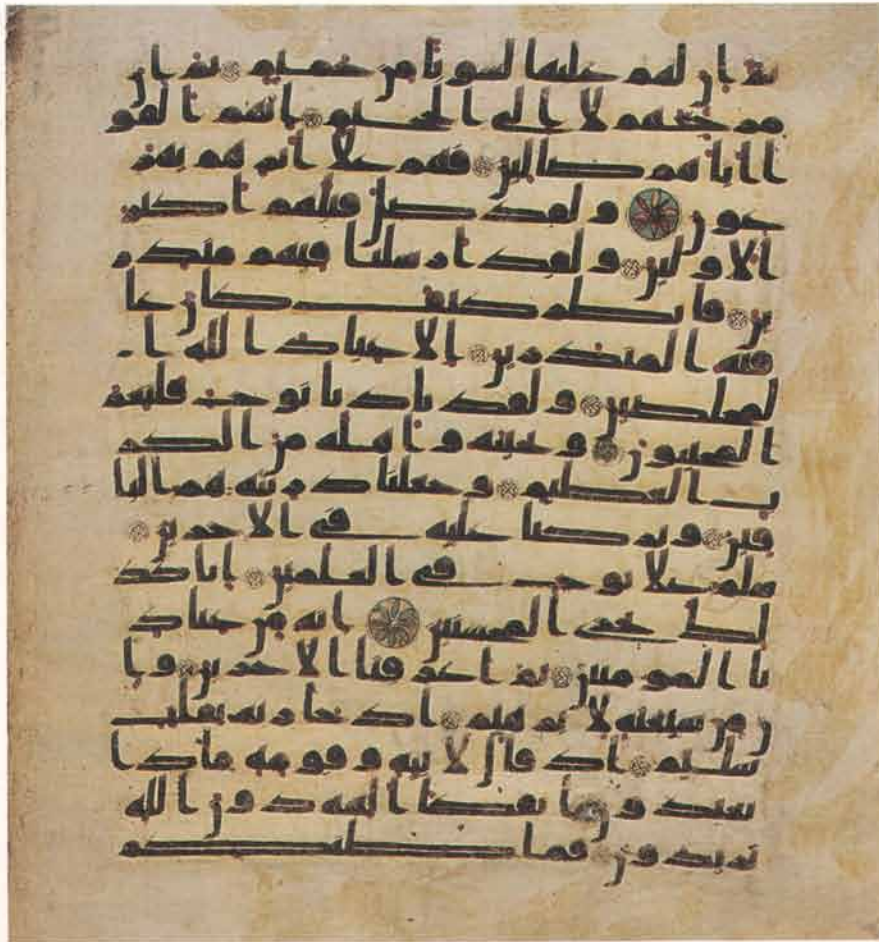 ثم إن لهم عليها لشوبا من حميم ثم إن
مرجعهم لإلى الجحيم إنهم ألفو
ا اباهم ضالين فهم على اثرهم يهر
عون ولقد ضل قبلهم أكثر
الأولين ولقد أرسلنا فيهم منذر
ين فانظر كيف كان عا
قبة المنذرين إلا عباد الله ا
لمخلصين ولقد نادينا نوح فلنعم
المجيبون ونجينه وأهله من الكر
ب العظيم وجعلنا ذريته هم البا
قين وتركنا عليه في الآخرين
سلم على نوح في العلمين إنا كذ
لك نجزي المحسنين إنه من عباد
نا المؤمنين ثم أغرقنا الآخرين وإ
ن من شيعته لإبرهيم إذ جا ربه بقلب
سليم إذ قال لأبيه وقومه ماذا
تعبدون أئفكا الهة دون الله
تريدون فما ظنكم